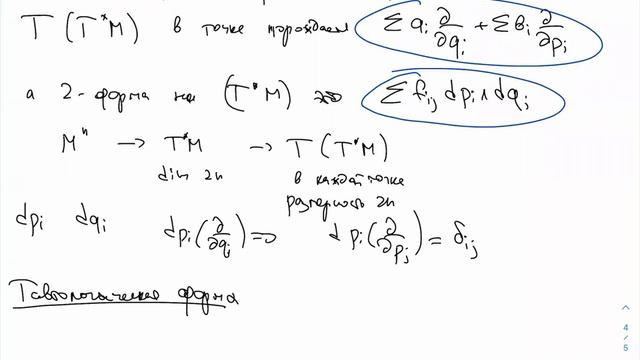 T (T*M) в точке порождаем ∑ aᵢ ∂/∂qᵢ + ∑ вᵢ ∂/∂pᵢ
а 2-форма на (T*M) это ∑ fᵢⱼ dpᵢ ∧ dqⱼ
Mⁿ → T*M → T (T*M)
dim 2n в каждой точке
размерность 2n
dpᵢ dqᵢ dpᵢ(∂/∂qⱼ) = 0 dpᵢ(∂/∂pⱼ) = δᵢⱼ
Тавтологическая форма
4
/
5